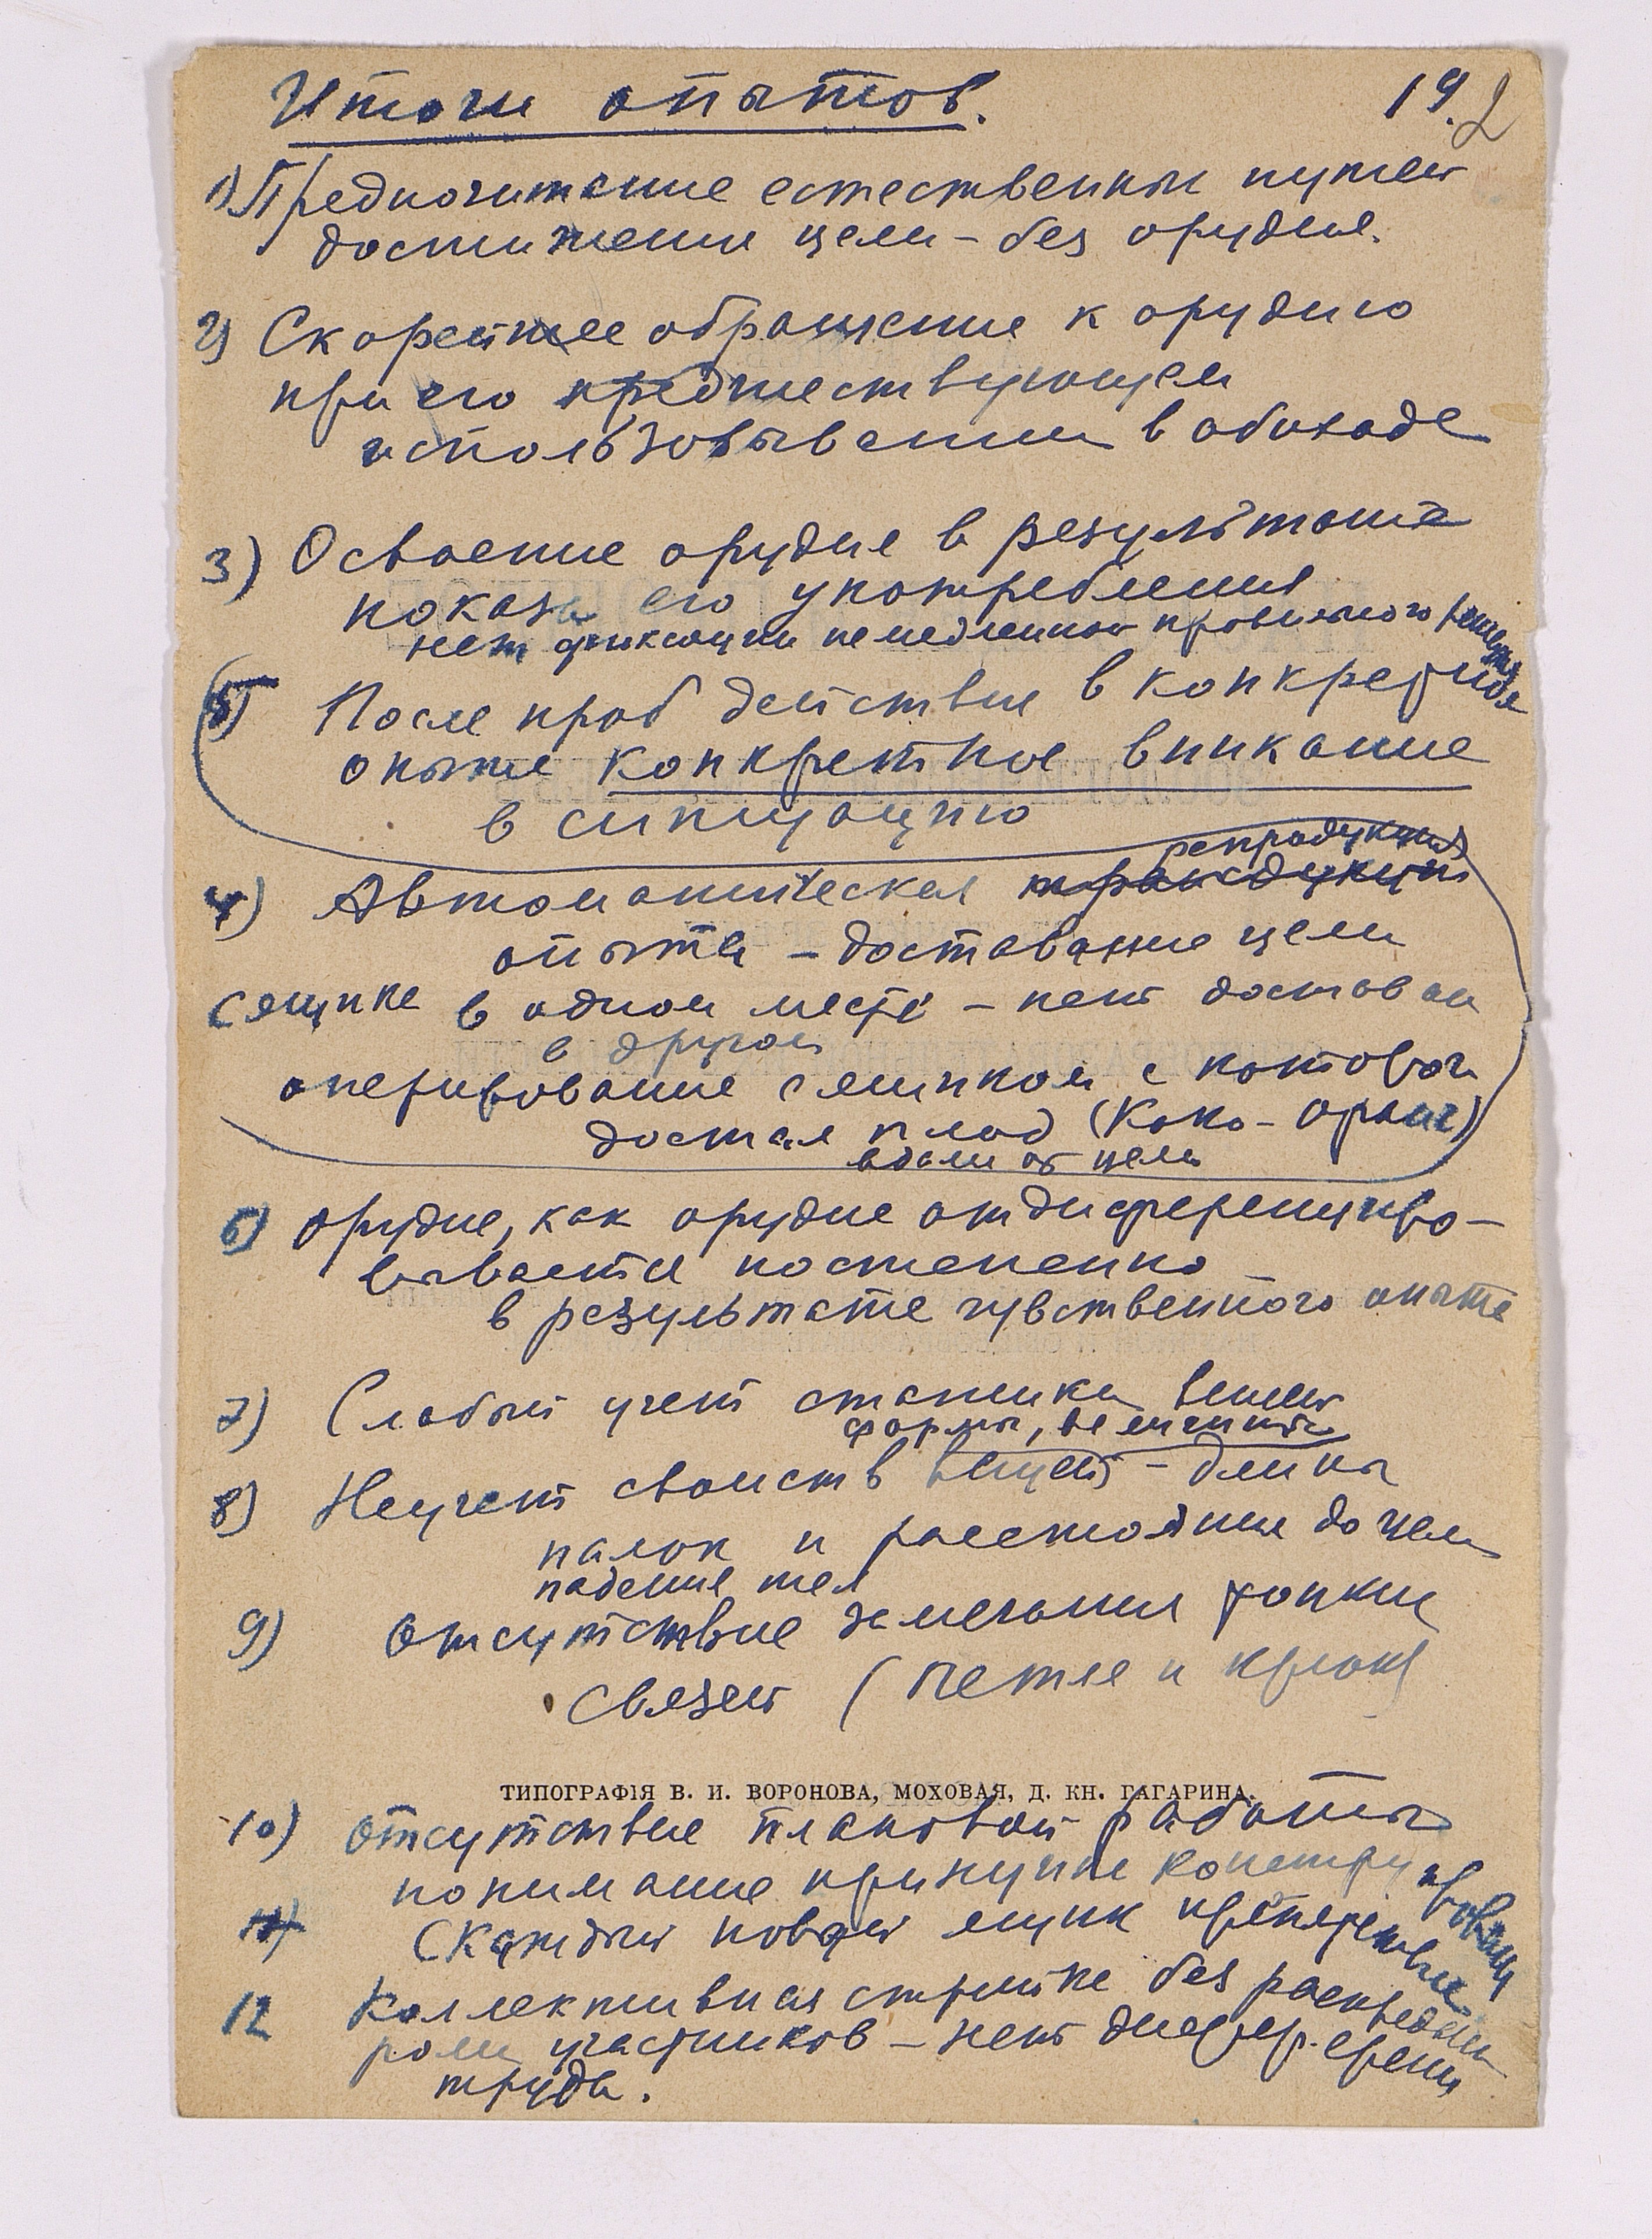 Итоги опытов.
19.2
1) Предпочитание естественных путей
достижения цели – без орудия.
2) Скорейшее обращение к орудию
при его предшествующем
использовывании в обиходе
3) Освоение орудия в результате
показа его употребления
нет фиксации немедленной правильного решения
5) После проб действия в конкретном
опыте конкретное вникание
в ситуацию
репродукция
4) Автоматическая трансдукция
опыта – доставание цели
с ящика в одном месте – нет доставан
в другом
оперирование с ящиком с которого
достал плод (Коко – Оранг)
вдали от цели
6) Орудие, как орудие отдиференциро-
вывается постепенно
в результате чувственного опыта
7) Слабый учет статики вещей
формы, величины
8) Неучет свойств вещей – длины
палок и расстояния до цели
падение тел
9) Отсутствие замечания тонких
связей (петля и крюк)
ТИПОГРАФІЯ В. И. ВОРОНОВА, МОХОВАЯ, Д. КН. ГАГАРИНА.
10) Отсутствие плановой работы
понимание принципа конструирования
11) (Каждый новый ящик препятствие
12 Коллективная стройка без распределен
роли участников – нет диффер.
труда.